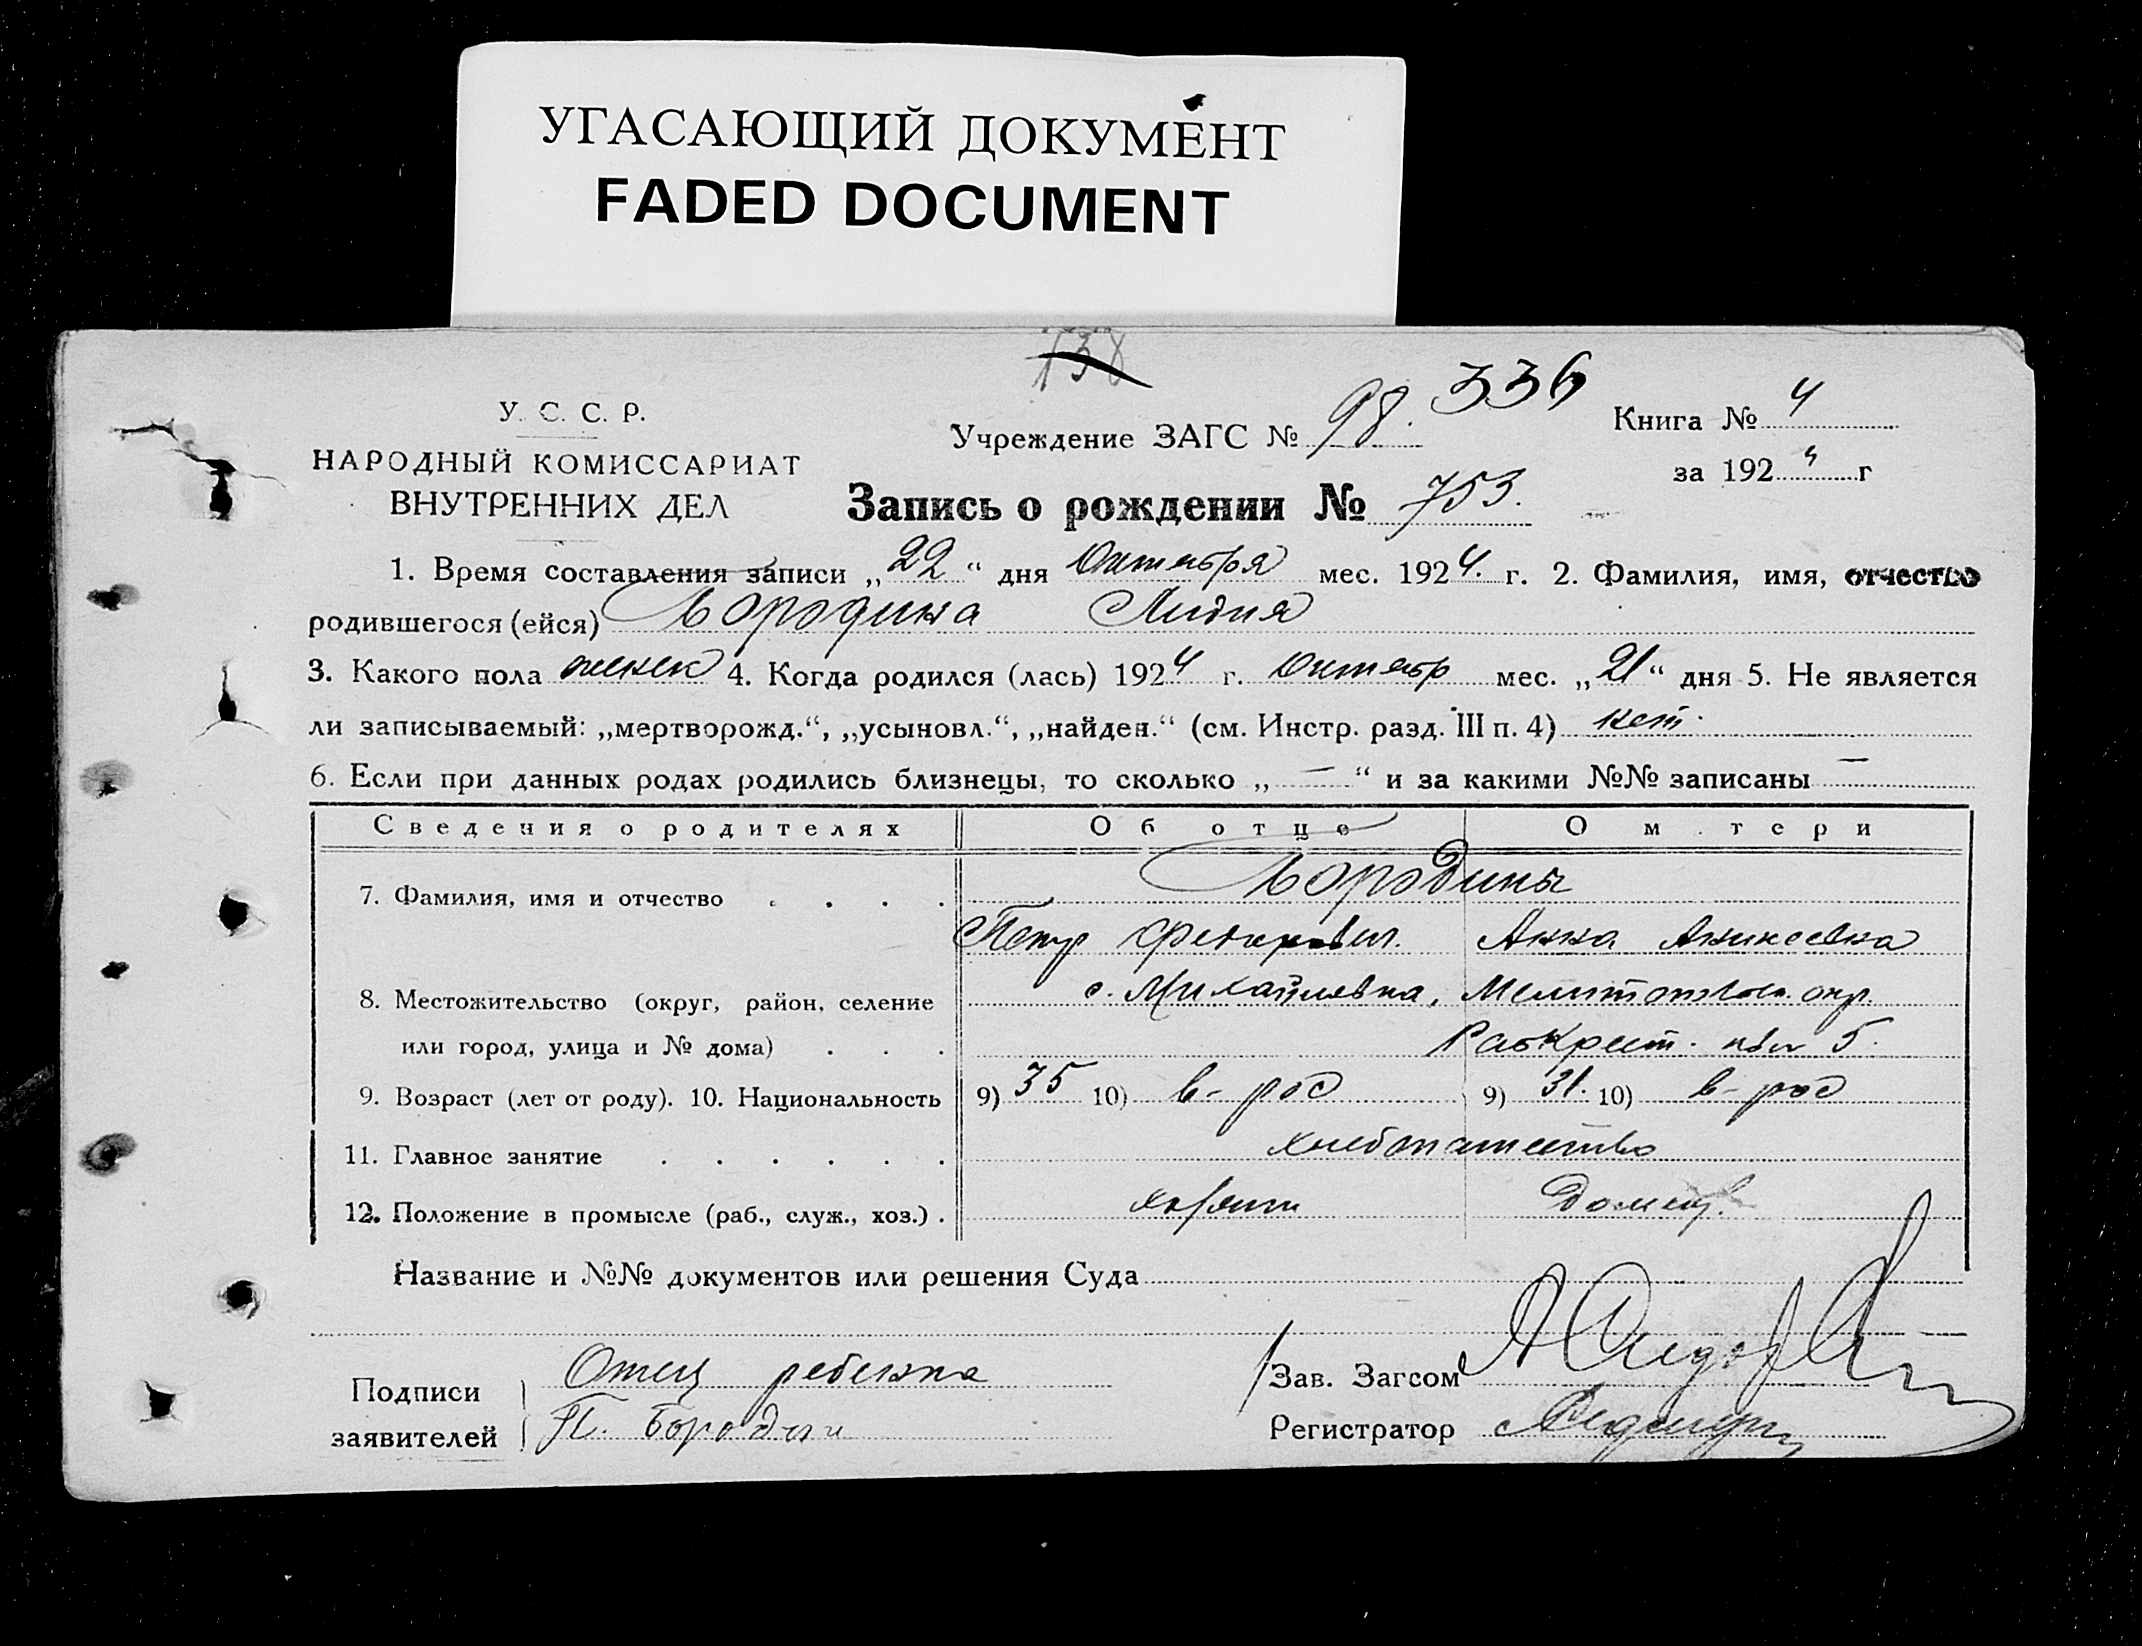 УГАСАЮЩИЙ ДОКУМЕНТ
FADED DOCUMENT
138
336
У. С. С. Р.
НАРОДНЫЙ КОМИССАРИАТ
ВНУТРЕННИХ ДЕЛ
Учреждение ЗАГС № 98.
Книга № 4
за 1924 г
Запись о рождении № 753.
1. Время составления записи „22“ дня Октября мес. 1924. г. 2. Фамилия, имя, отчество
родившегося (ейся) Бородина Лидия
3. Какого пола женск 4. Когда родился (лась) 1924 г. Октябр мес. „21“ дня 5. Не является
ли записываемый: „мертворожд.“, „усыновл.“, „найден.“ (см. Инстр. разд. III п. 4) нет.
6. Если при данных родах родились близнецы, то сколько „—“ и за какими №№ записаны —
Сведения о родителях Об отце О м тери
7. Фамилия, имя и отчество Бородины
Петр Анна Аникеевна
8. Местожительство (округ, район, селение с. Михайловка, Мелитопольск. окр.
или город, улица и № дома) 5.
9. Возраст (лет от роду). 10. Национальность 9) 35 10) в-рос 9) 31. 10) в-рос
11. Главное занятие хлебопашество
12. Положение в промысле (раб., служ., хоз.) хозяин домохоз.
Название и №№ документов или решения Суда
Подписи заявителей
Отец ребенка
П. Бородин
Зав. Загсом
Регистратор